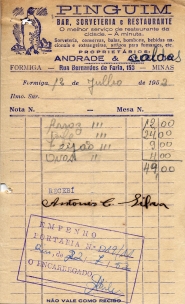 PINGUIM
BAR, SORVETERIA e RESTAURANTE
O melhor serviço de restaurante da
cidade. - A minuta.
Sorveteria, conservas, balas, bombons, bebidas na-
cionais e estrangeiras, artigos para fumantes, etc.
PROPRIETARIOS:
ANDRADE &
FORMIGA - Rua Bernardes de Faria, 193 - MINAS
Formiga, 12 de Julho de 1952
Ilmo. Snr.
Nota N. Mesa N.
Arroz 12,00
24,00
Feijão 9,00
Ovos
49,00
RECEBÍ
Antonio C. Silva
EMPENHO
PORTARIA N.
O ENCARREGADO
NÃO VALE COMO RECIBO